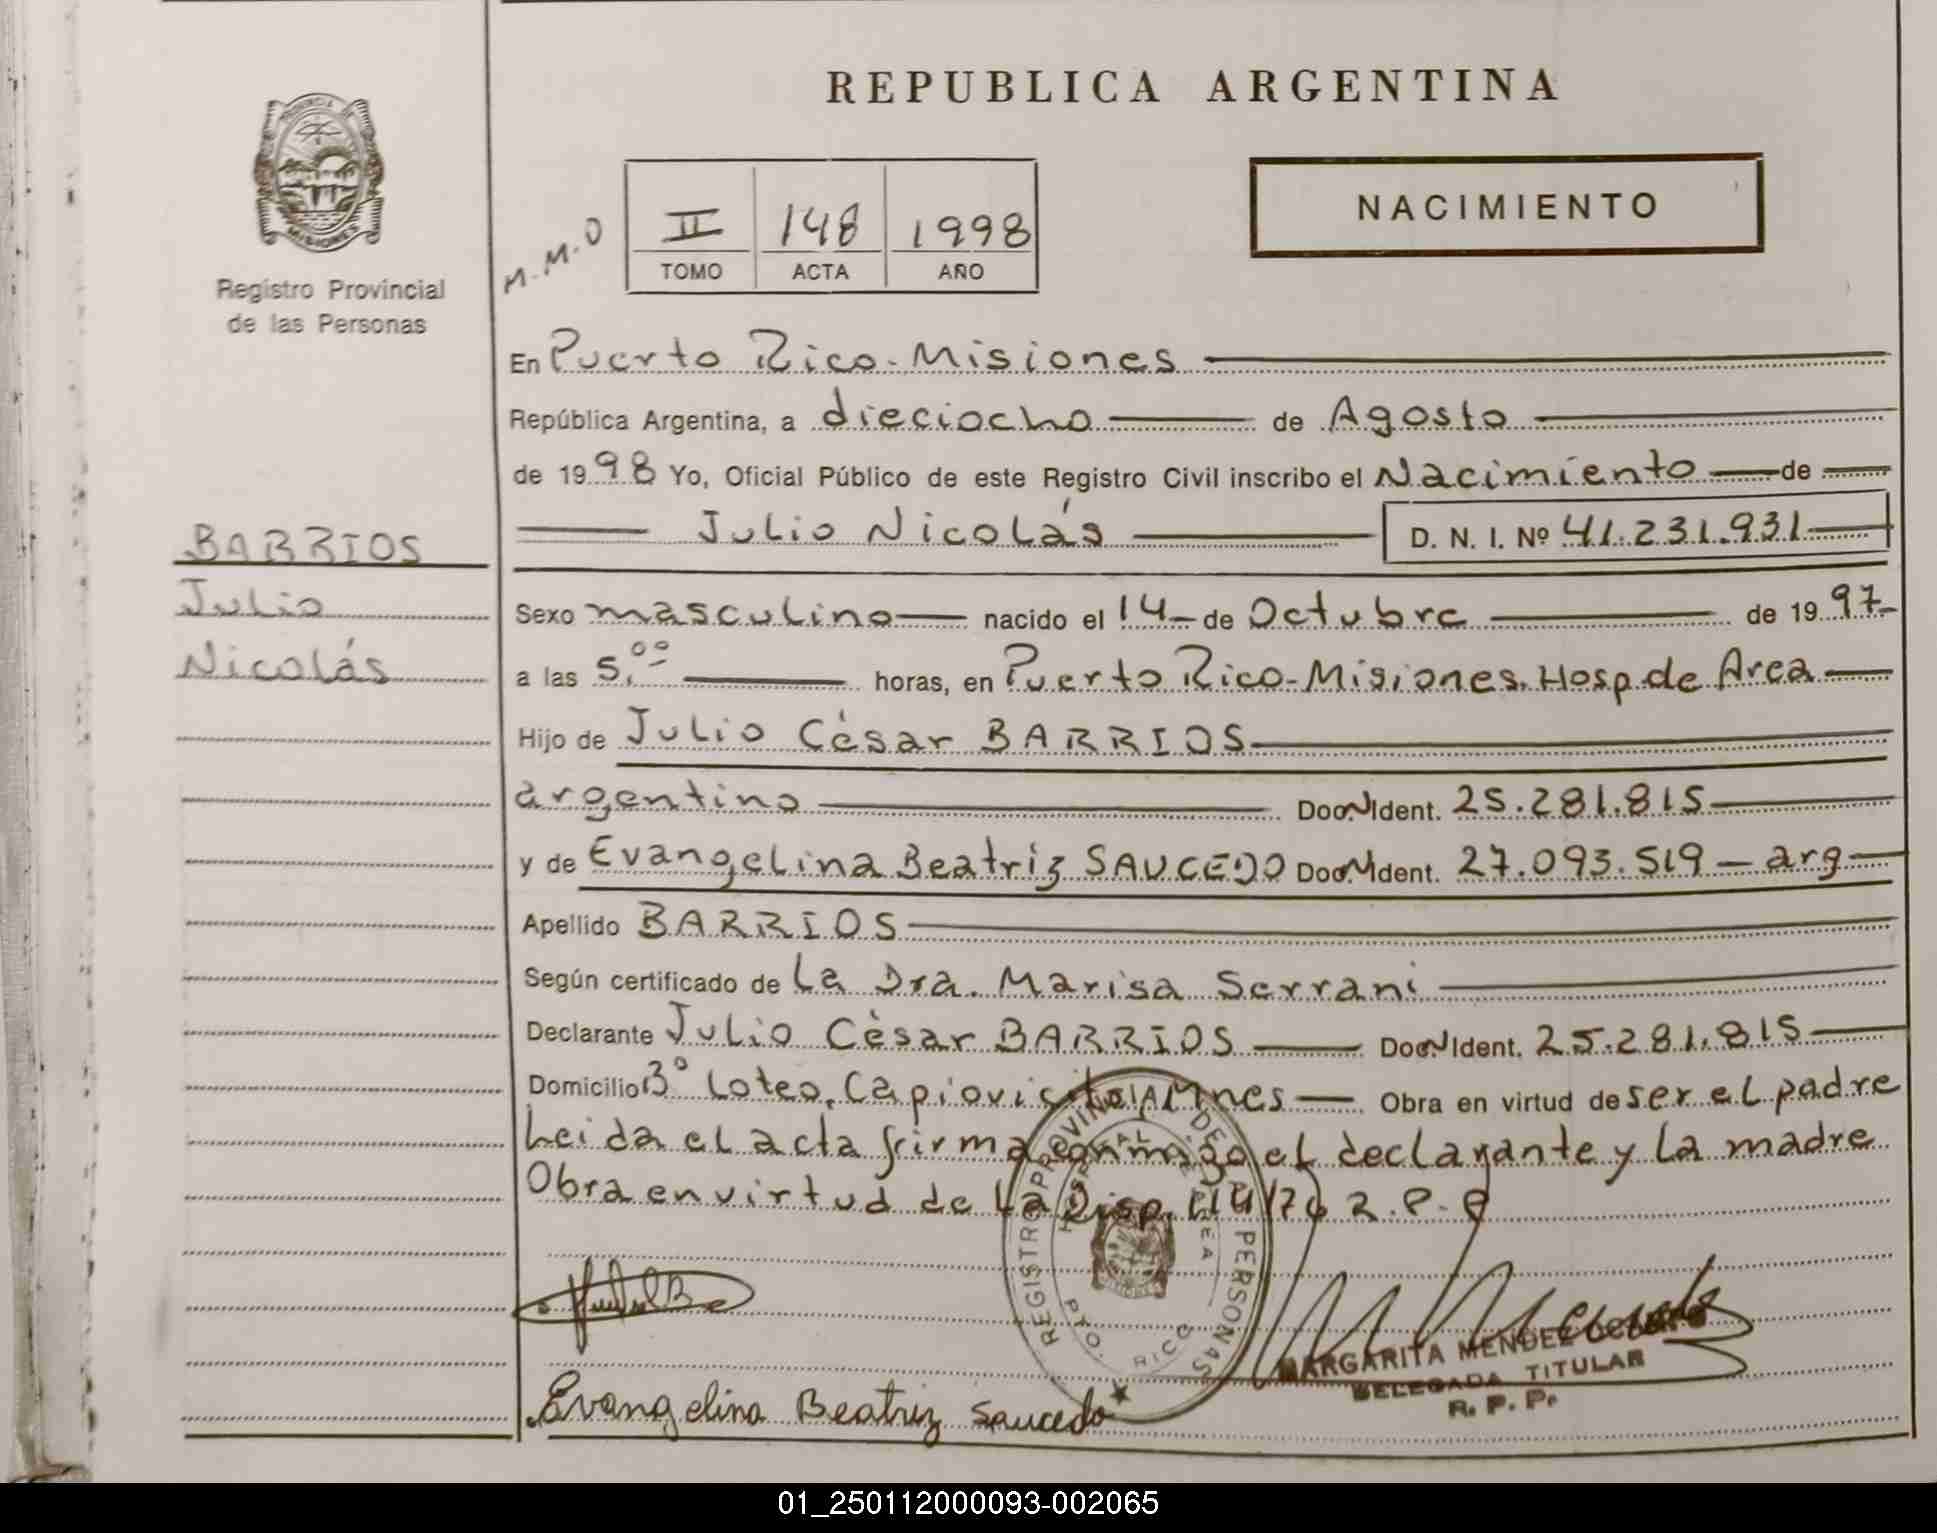 REPUBLICA ARGENTINA
PROVINCIA DE
MISIONES
Registro Provincial
de las Personas
NACIMIENTO
M.M.O
II 148 1998
TOMO ACTA AÑO
En Puerto Rico-Misiones
República Argentina, a dieciocho de Agosto
de 1998 Yo, Oficial Público de este Registro Civil inscribo el Nacimiento de
Julio Nicolás D. N. I. Nº 41.231.931
BARRIOS
Julio
Nicolás
Sexo masculino nacido el 14 de Octubre de 1997
a las 5,00 horas, en Puerto Rico-Misiones. Hosp. de Area
Hijo de Julio César BARRIOS
argentino Doc. N Ident. 25.281.815
y de Evangelina Beatriz SAUCEDO Doc. N Ident. 27.093.519 - arg
Apellido BARRIOS
Según certificado de La Dra. Marisa Serrani
Declarante Julio Cèsar BARRIOS Doc. N Ident. 25.281.815
Domicilio 3º Loteo, Capiovicito Mnes Obra en virtud de ser el padre
Leida el acta firma conmigo el declarante y La madre
Obra en virtud de La Disp. 114/76 R.P.P
REGISTRO PROVINCIAL DE PERSONAS
PTO. RICO
MARGARITA MENDEZ
DELEGADA TITULAR
R. P. P.
Evangelina Beatriz Saucedo
01_250112000093-002065